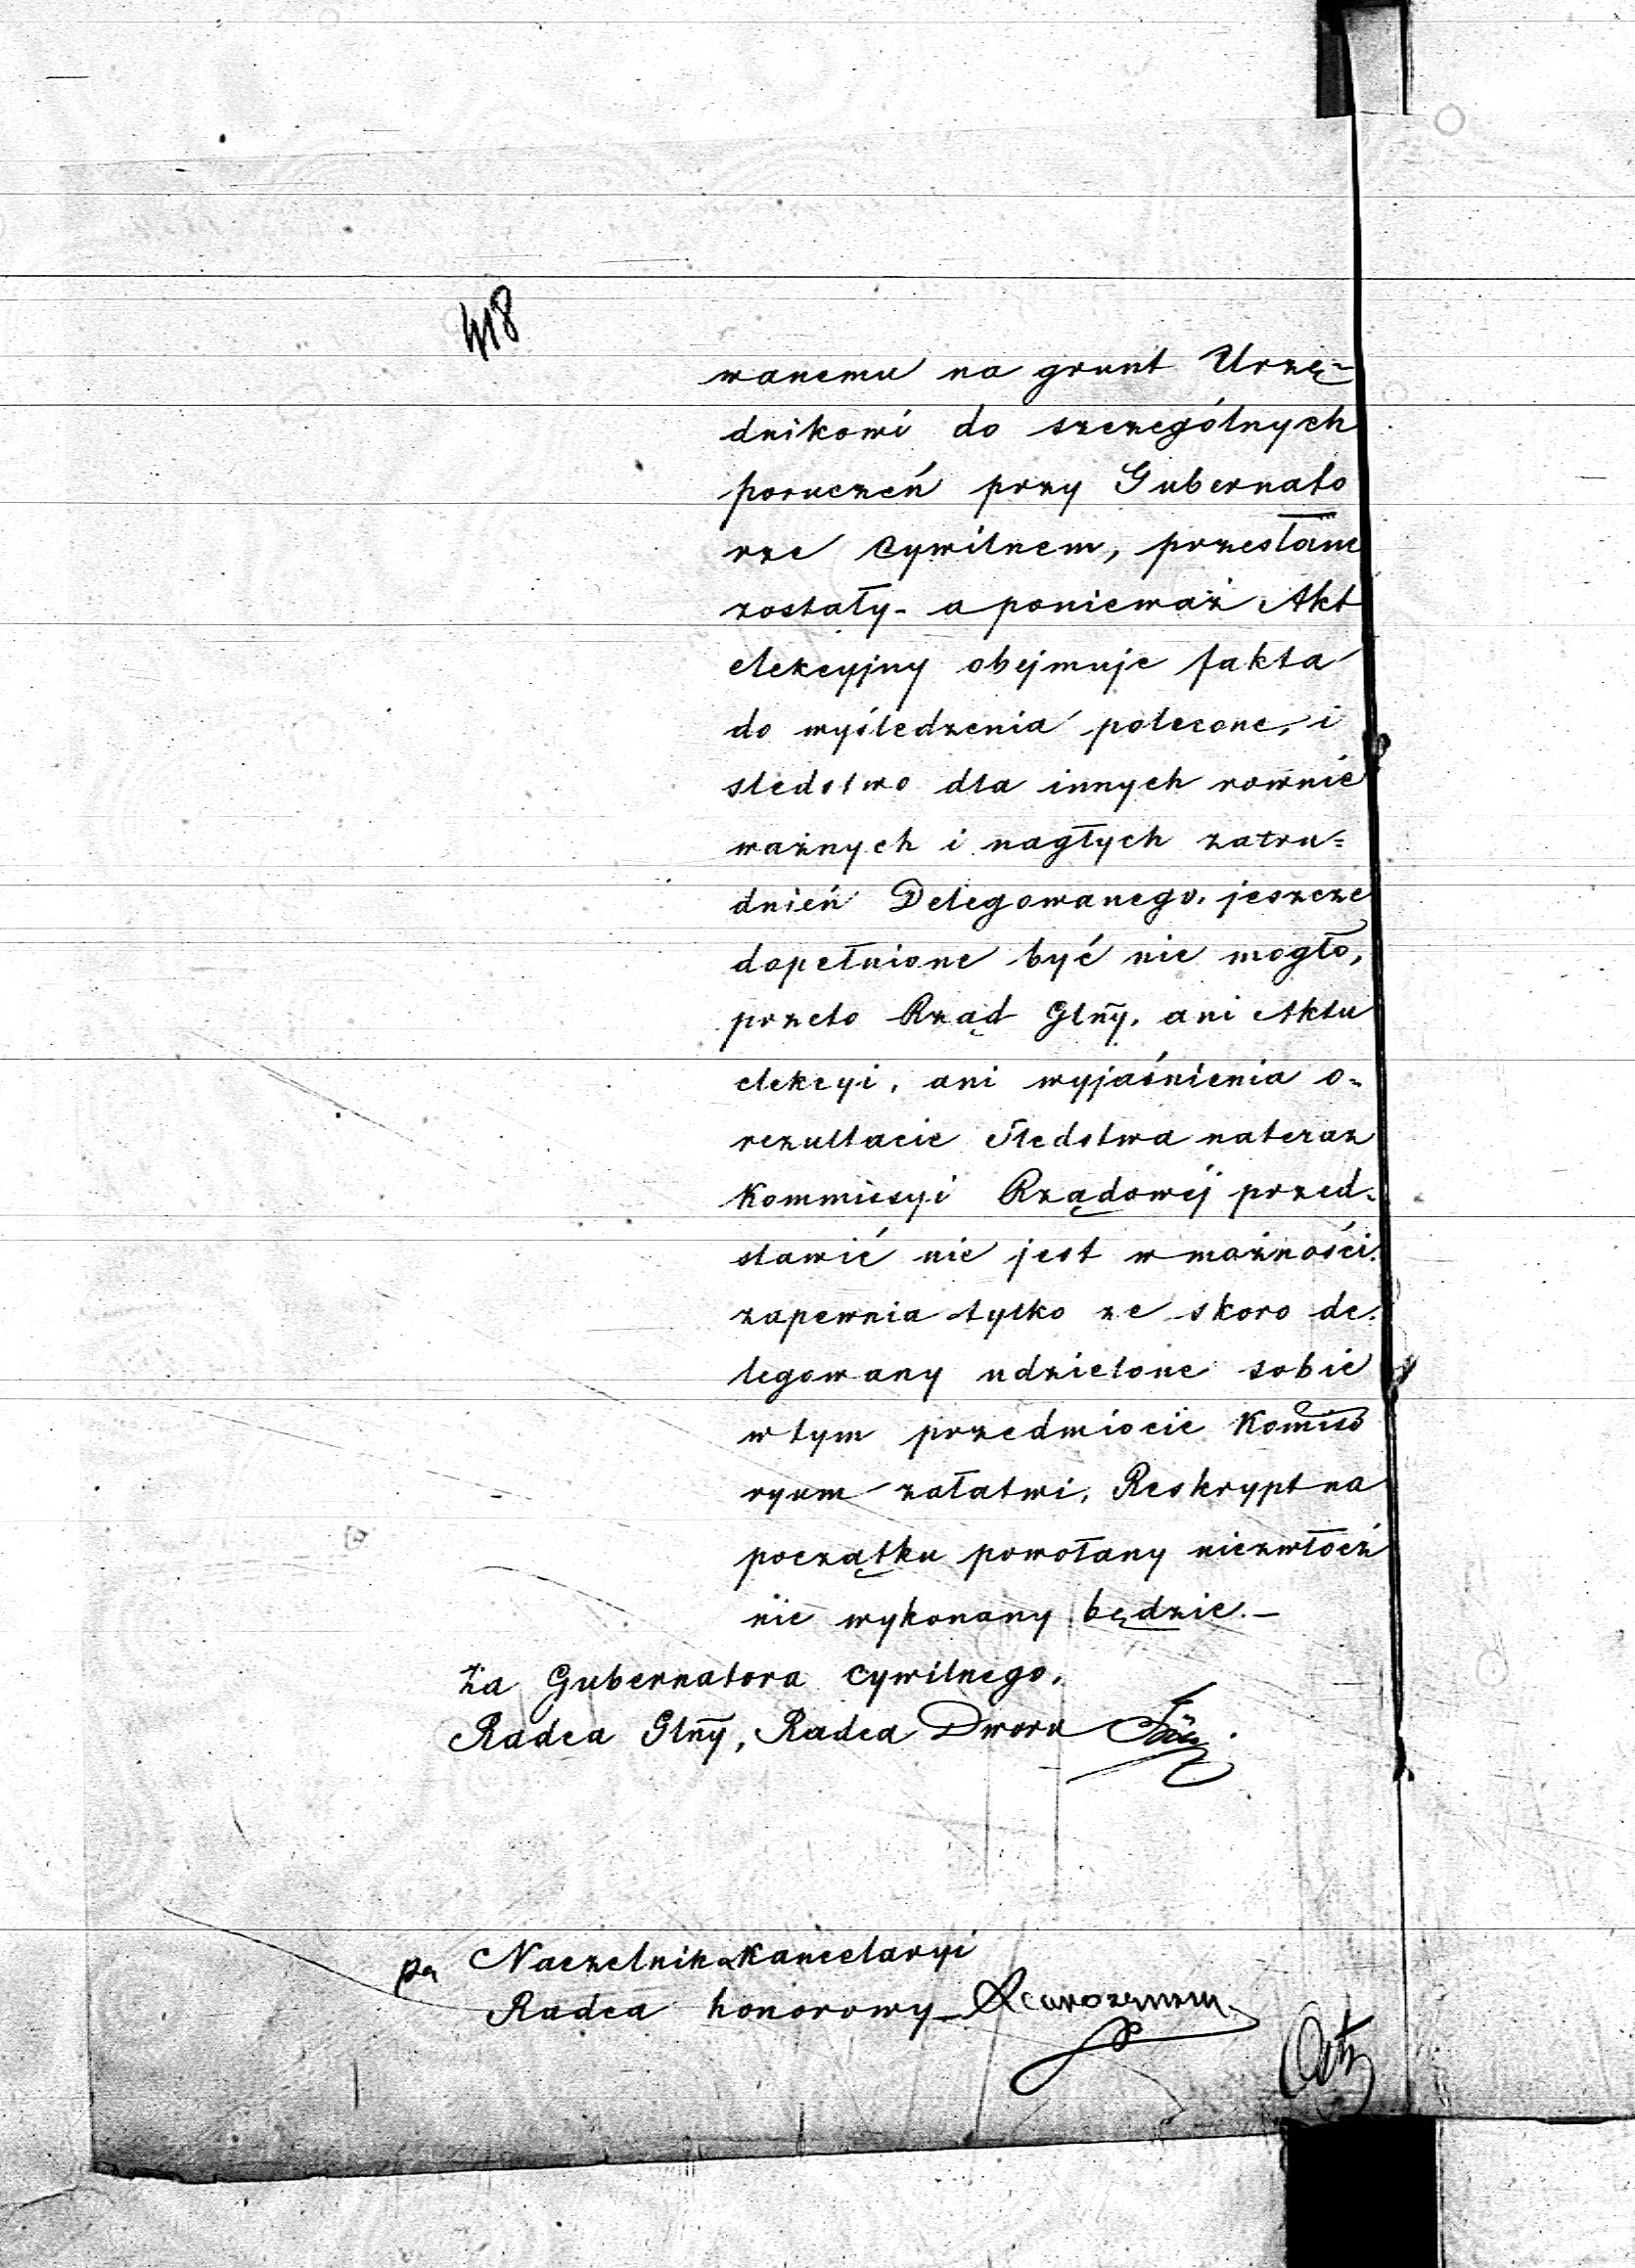 418
wanemu na grunt Urzę-
dnikowi do szczególnych
poruczeń przy Gubernato
rze Cywilnem, przesłane
zostały - a ponieważ Akt
elekcyjny obejmuje fakta
do wyśledzenia polecone, i
sledstwo dla innych rownie
ważnych i nagłych zatru=
dnień Delegowanego, jeszcze
dopełnione być nie mogło,
przeto Rząd Glny, ani Aktu
elekcyi, ani wyjaśnienia o-
rezultacie śledstwa nateraz
Kommissyi Rządowéj przed-
stawić nie jest w możności.
zapewnia tylko ze skoro de-
legowany udzielone sobie
w tym przedmiocie Komiso
ryum załatwi, Reskrypt na
początku powołany niezwłocz
nie wykonany będzie.-
Za Gubernatora Cywilnego,
Radca Glny, Radca Dworu
pa Naczelnik Kancelaryi
Radca honorowy